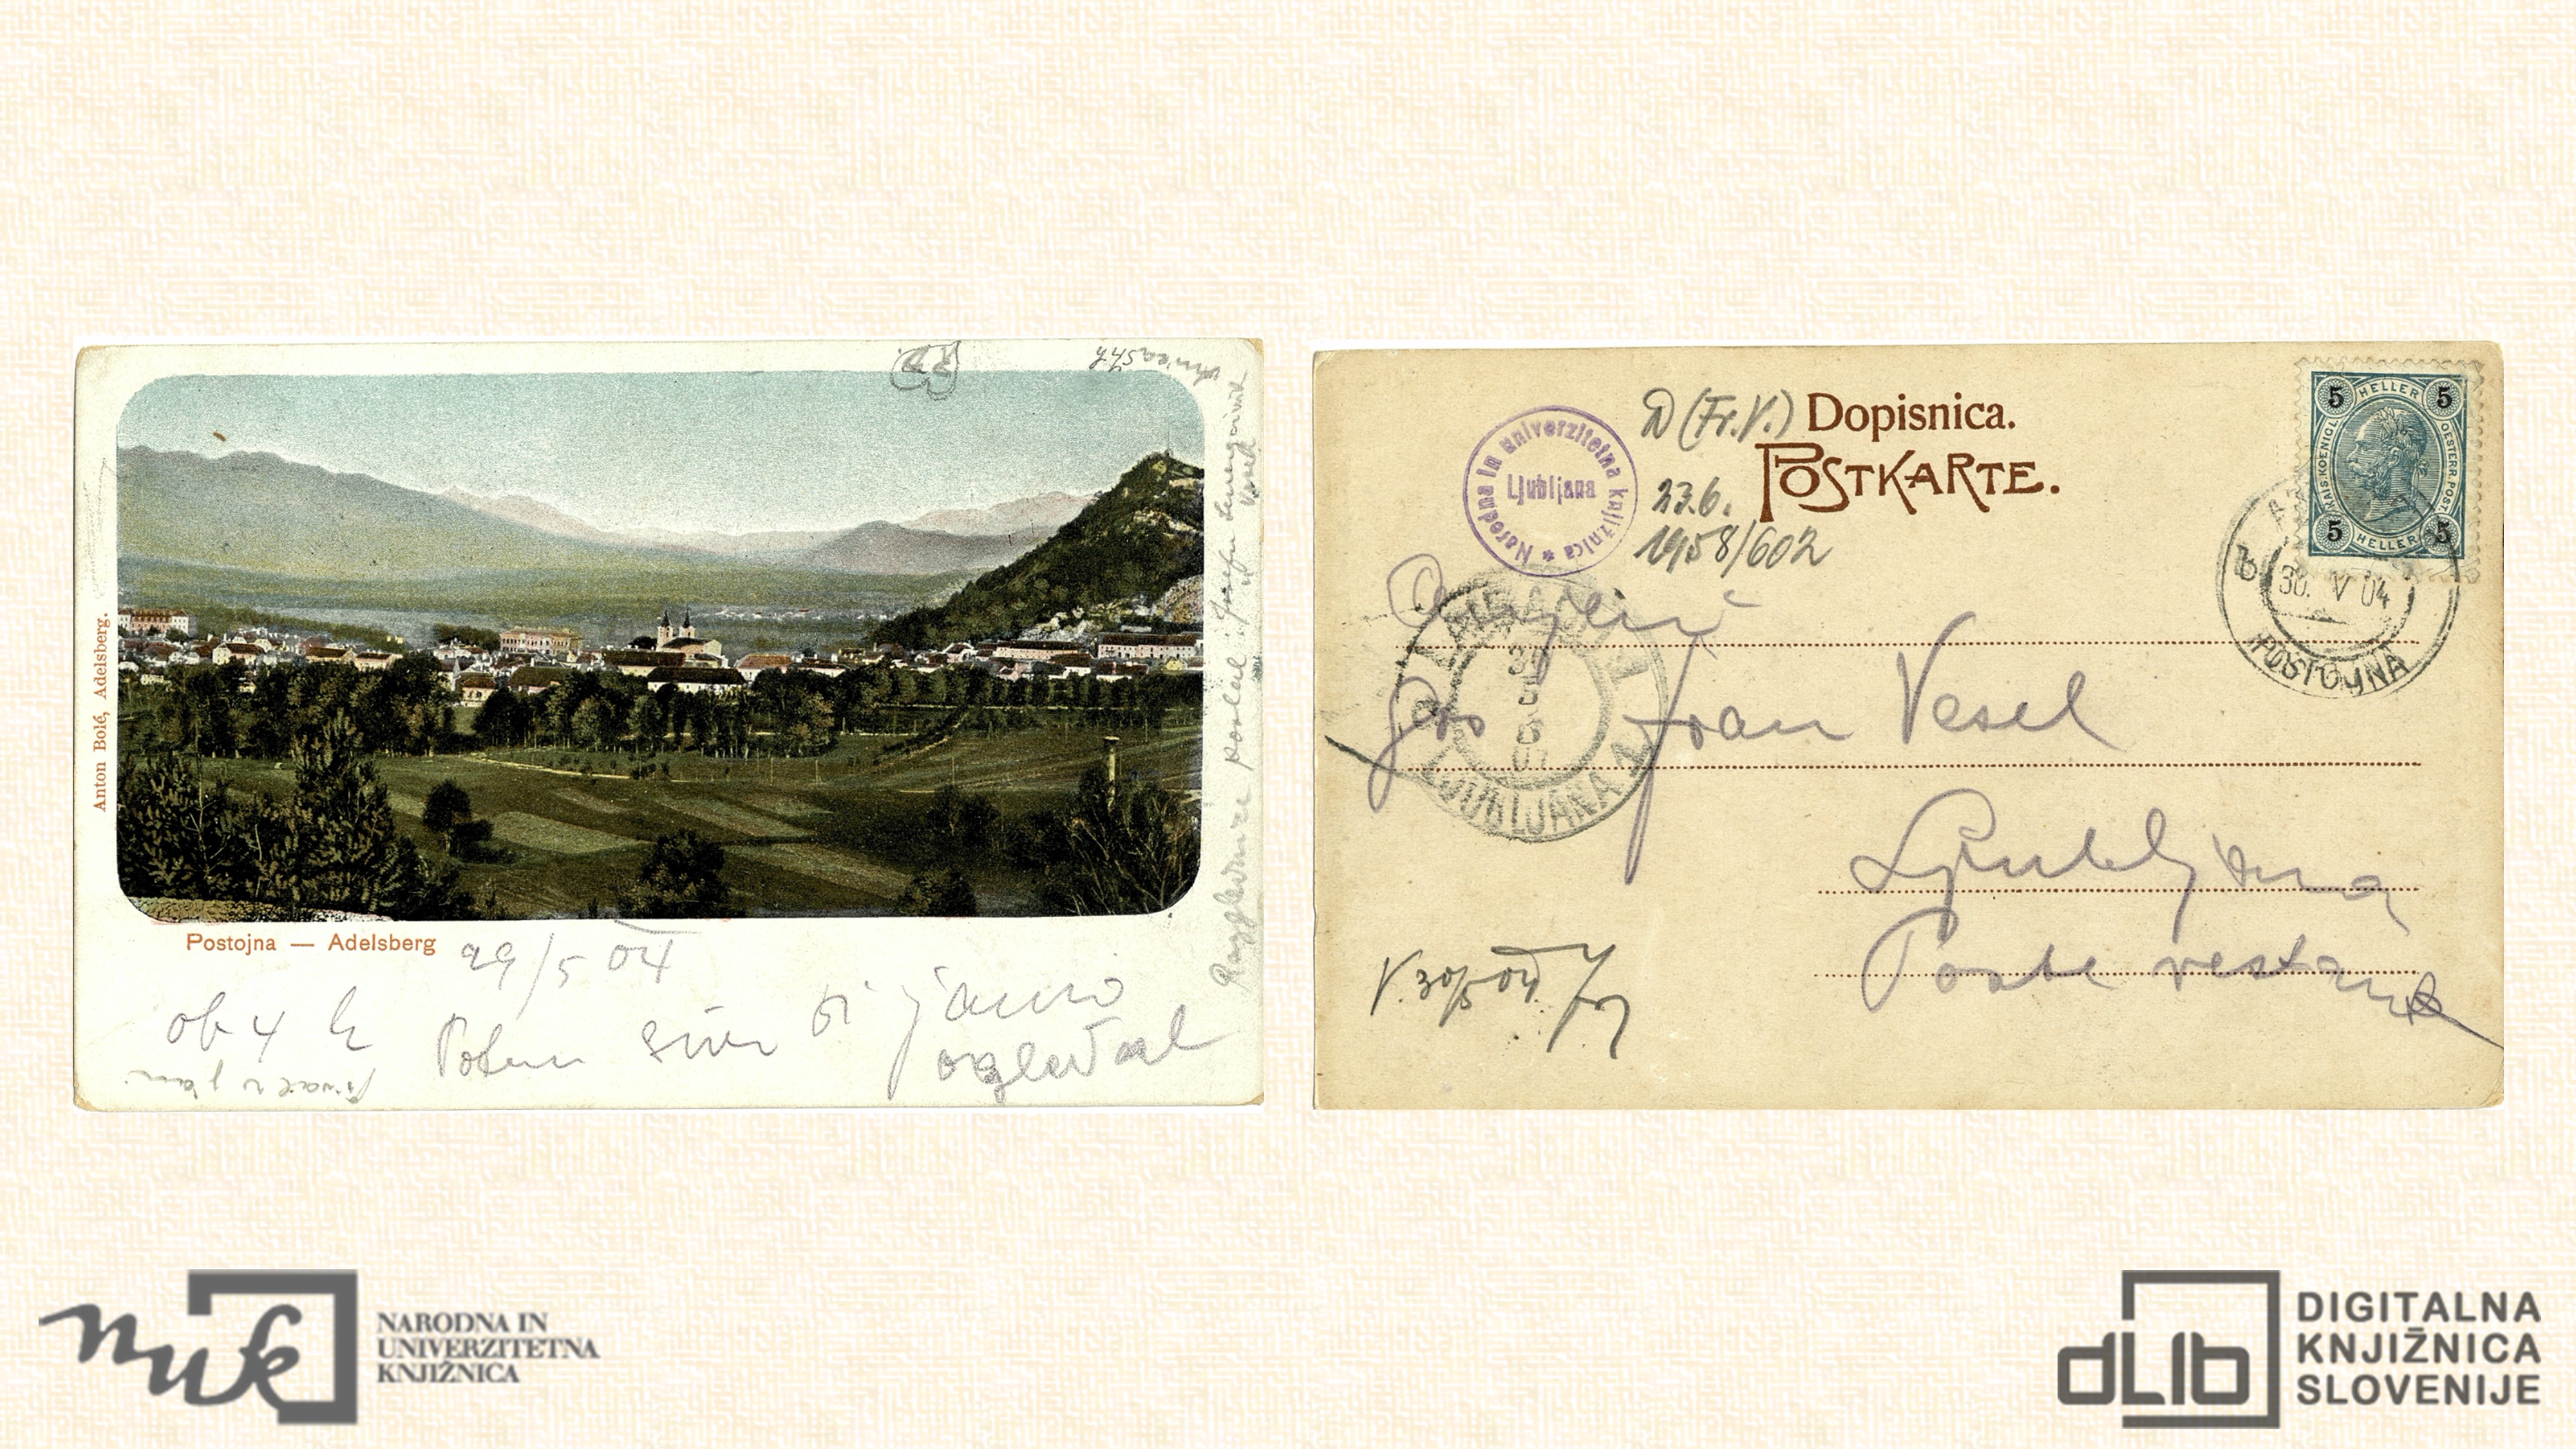 Anton Bolé, Adelsberg.
Postojna — Adelsberg
29/5 04
ob 4 h
Potem sim si jamo
ogledal
Razglednice poslal:
D (Fr. V.)
Dopisnica.
POSTKARTE.
Narodna in univerzitetna knjižnica
Ljubljana
23.6.
1958/602
5 HELLER 5
KAIS. KOENIGL. OESTERR. POST
5 HELLER 5
30. V 04
POSTOJNA
LJUBLJANA
Fran Vesel
Ljubljana
Poste restante
V. 30/5 04
nuk
NARODNA IN
UNIVERZITETNA
KNJIŽNICA
dLib
DIGITALNA
KNJIŽNICA
SLOVENIJE